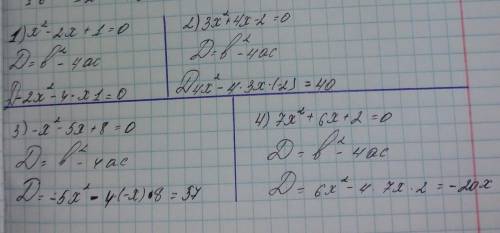 1) x² - 2x + 1 = 0
D = b² - 4ac
D = 2x² - 4 · x 1 = 0
2) 3x² + 4x - 2 = 0
D = b² - 4ac
D 4x² - 4 · 3x · (2) = 40
3) -x² - 5x + 8 = 0
D = b² - 4ac
D = -5x² - 4(-x) · 8 = 57
4) 7x² + 6x + 2 = 0
D = b² - 4ac
D = 6x² - 4 · 7x · 2 = -20x